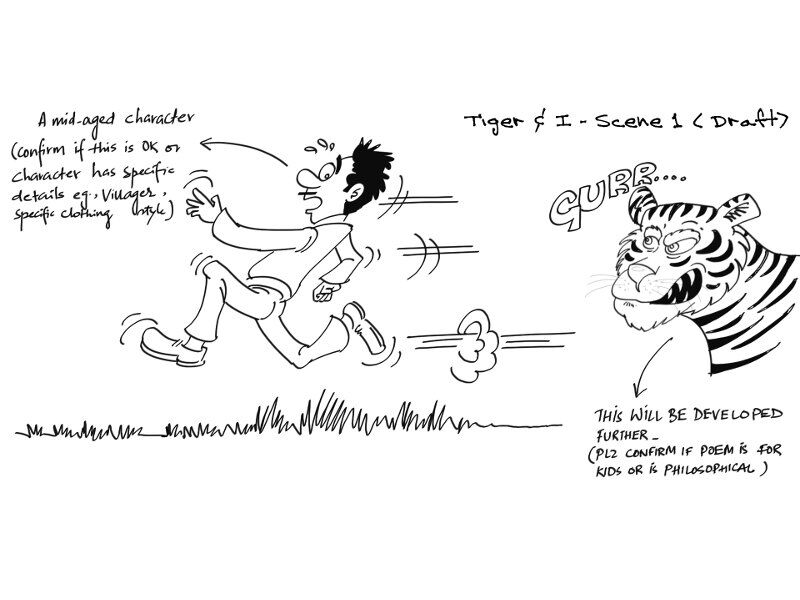 A mid-aged character
(Confirm if this is OK or
character has specific
details eg., Villager,
specific clothing style)
Tiger & I - Scene 1 ( Draft)
GURR....
THIS WILL BE DEVELOPED
FURTHER -
(PLZ CONFIRM IF POEM IS FOR
KIDS OR IS PHILOSOPHICAL )